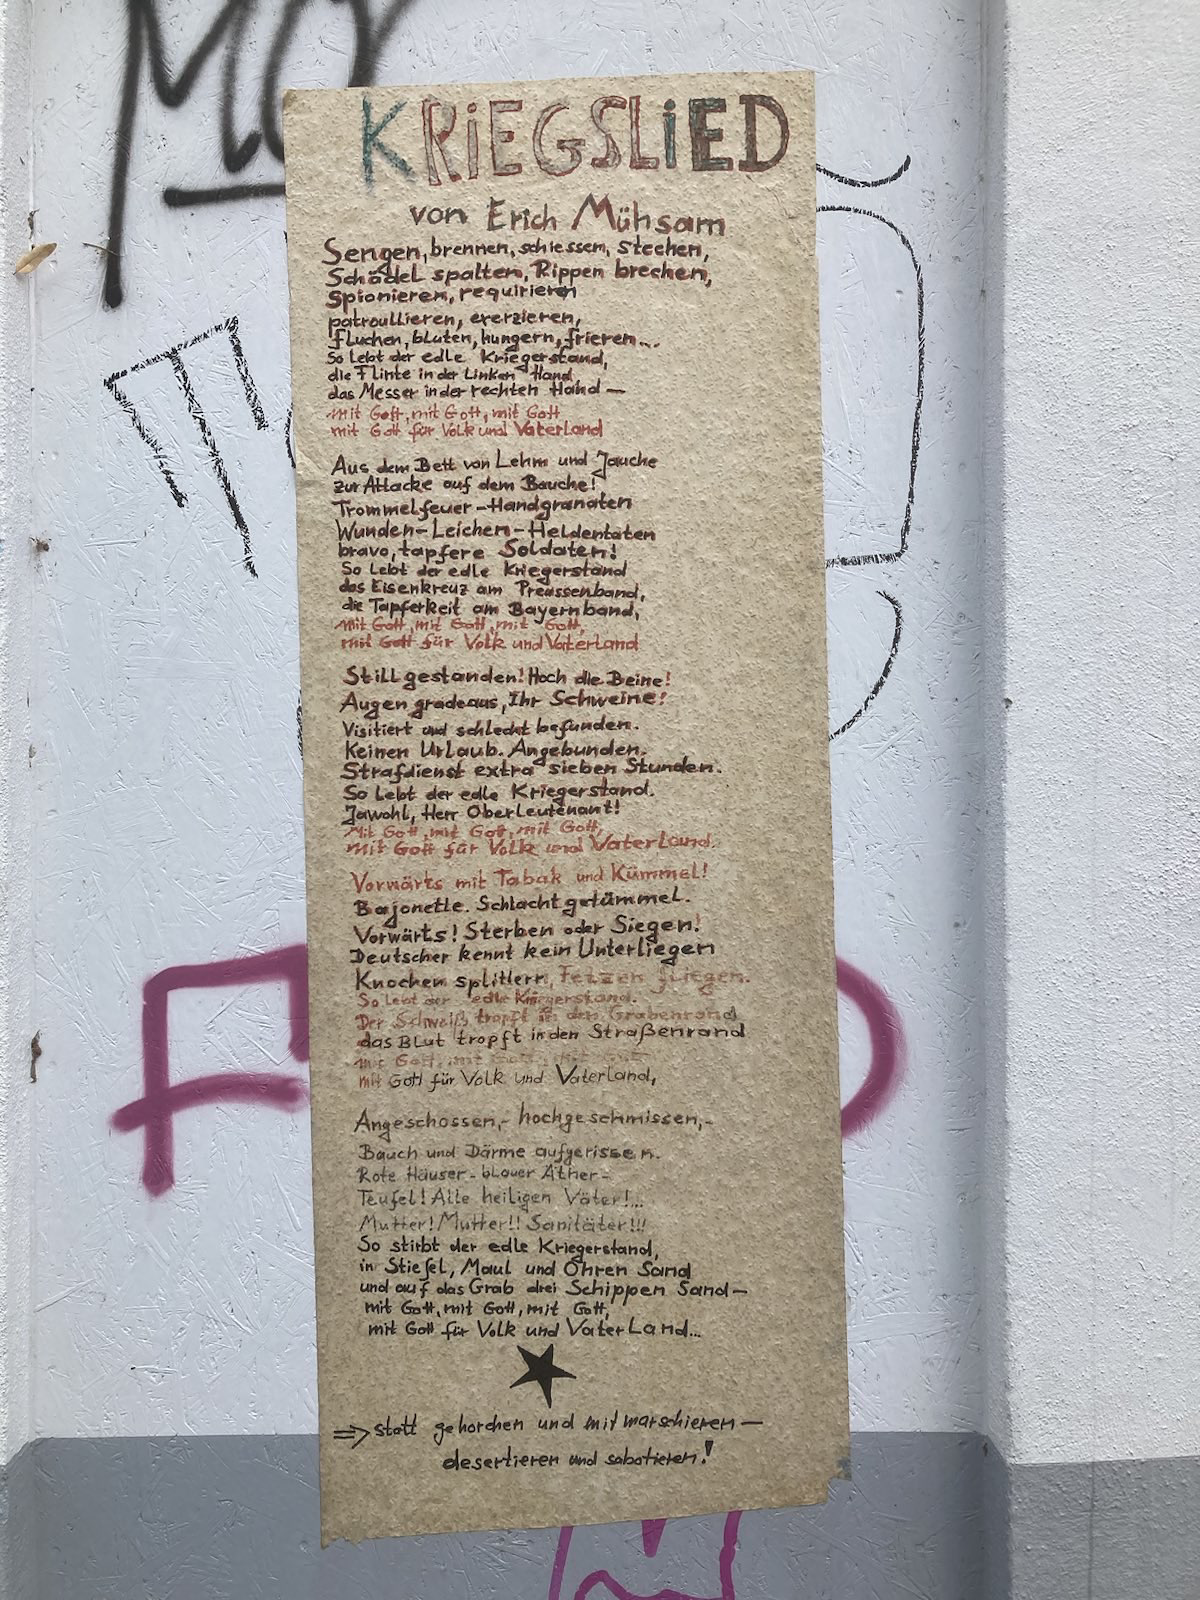 KRiEGSLiED
von Erich Mühsam
Sengen, brennen, schiessen, stechen,
Schädel spalten, Rippen brechen,
Spionieren, requirieren
patroullieren, exerzieren,
fluchen, bluten, hungern, frieren...
So lebt der edle Kriegerstand,
die Flinte in der Linken Hand
das Messer in der rechten Hand —
mit Gott, mit Gott, mit Gott
mit Gott für Volk und Vaterland
Aus dem Bett von Lehm und Jauche
zur Attacke auf dem Bauche!
Trommelfeuer - Handgranaten
Wunden - Leichen - Heldentaten
bravo, tapfere Soldaten!
So lebt der edle Kriegerstand
das Eisenkreuz am Preussenband,
die Tapferkeit am Bayernband,
mit Gott, mit Gott, mit Gott,
mit Gott für Volk und Vaterland
Still gestanden! Hoch die Beine!
Augen gradeaus, Ihr Schweine!
Visitiert und schlecht befunden.
Keinen Urlaub. Angebunden.
Strafdienst extra sieben Stunden.
So lebt der edle Kriegerstand.
Jawohl, Herr Oberleutenant!
Mit Gott, mit Gott, mit Gott,
mit Gott für Volk und Vaterland.
Vorwärts mit Tabak und Kümmel!
Bajonette. Schlachtgetümmel.
Vorwärts! Sterben oder Siegen!
Deutscher kennt kein Unterliegen
Knochen splittern, Fetzen fliegen.
So lebt der edle Kriegerstand.
Der Schweiß tropft in den Grabenrand
das Blut tropft in den Straßenrand
mit Gott, mit Gott, mit Gott
mit Gott für Volk und Vaterland,
Angeschossen,- hochgeschmissen,-
Bauch und Därme aufgerissen.
Rote Häuser - blauer Äther -
Teufel! Alle heiligen Väter!...
Mutter! Mutter!! Sanitäter!!!
So stirbt der edle Kriegerstand,
in Stiefel, Maul und Ohren Sand
und auf das Grab drei Schippen Sand —
mit Gott, mit Gott, mit Gott,
mit Gott für Volk und Vaterland...
⇒ statt gehorchen und mitmarschieren —
desertieren und sabotieren!